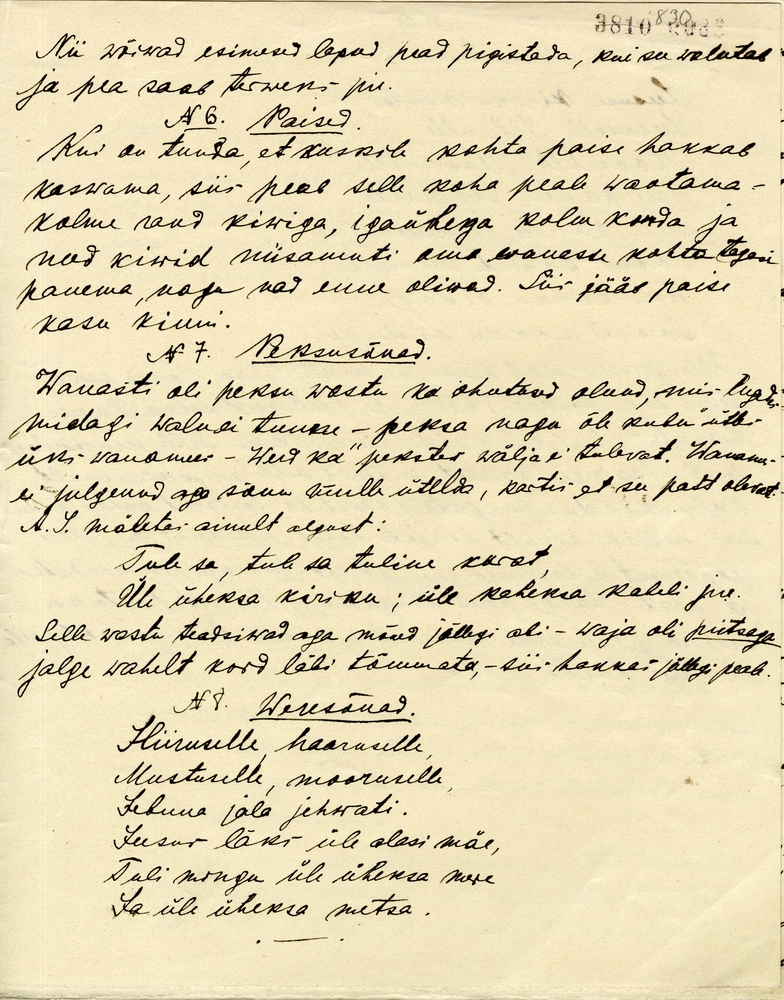 3810 830
Nii wõiwad esimesed lapsed pead pigistada, kui see walutab
ja pea saab terweks jne.
N 6. Paised.
Kui on tunda, et kuskile kohta paise hakkab
kaswama, siis peab selle koha peale waotama-
kolme rand kiwiga, igaühega kolm korda ja
need kiwid niisamuti oma wanasse kohta tagasi
panema, nagu nad enne oliwad. Siis jääb paise
kasu kinni.
N 7. Peksusõnad.
Wanasti oli peksu wastu ka ohutused olnud, mis
midagi walu ei tunne – peksa nagu õle kubu" ütles
üks wanamees – Werd ka" pekstes wälja ei tulewat. Wanam.-
ei julgenud aga sõnu mulle ütelda, kartis et see patt olewat.
A. S. mäletas ainult algust:
Tule sa, tule sa tuline kurat,
Üle üheksa kiriku; üle kaheksa kabeli jne.
Selle wastu teadsiwad aga mõned jällegi abi – waja oli piitsaga
jalge wahelt kord läbi tõmmata, – siis hakkas jällegi peale.
N 8. Weresõnad.
Hiiruselle, haaruselle,
Mustuselle, mooruselle,
jala jehwati.
Jeesus läks üle alasi mäe,
Tuli mingu üle üheksa mere
Ja üle üheksa metsa.